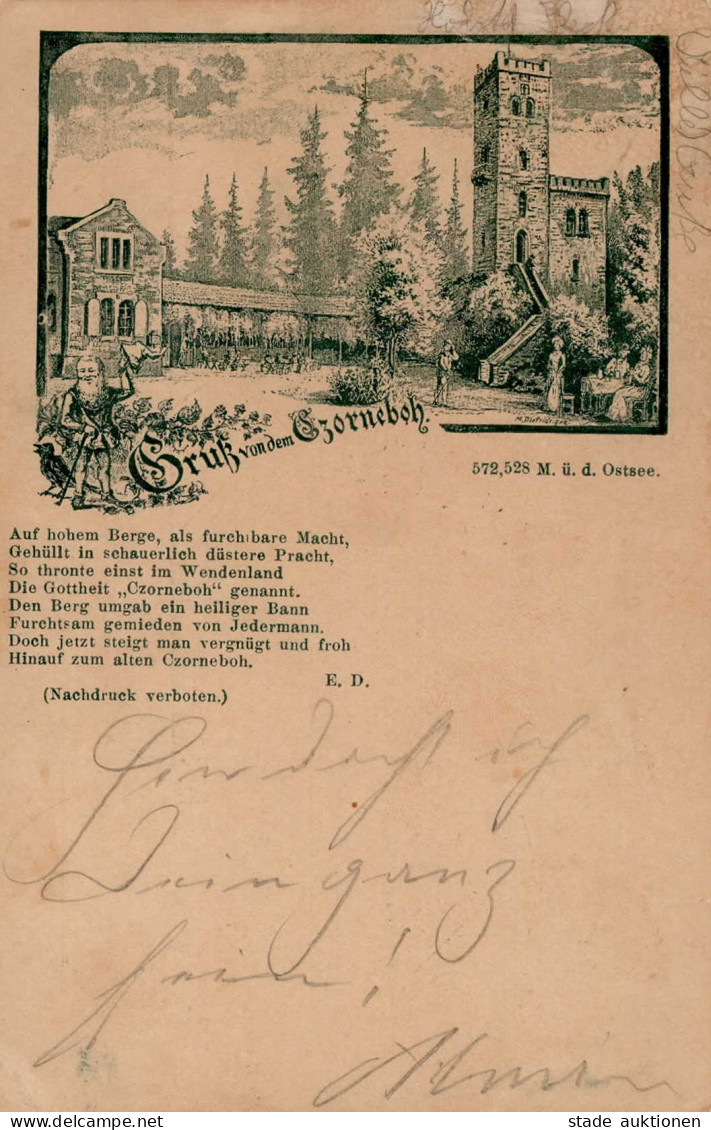 M. Dietrich
Gruß von dem Czorneboh.
572,528 M. ü. d. Ostsee.
Auf hohem Berge, als furchtbare Macht,
Gehüllt in schauerlich düstere Pracht,
So thronte einst im Wendenland
Die Gottheit „Czorneboh“ genannt.
Den Berg umgab ein heiliger Bann
Furchtsam gemieden von Jedermann.
Doch jetzt steigt man vergnügt und froh
Hinauf zum alten Czorneboh.
E. D.
(Nachdruck verboten.)
ich
Dein ganz
fein!
stade auktionen